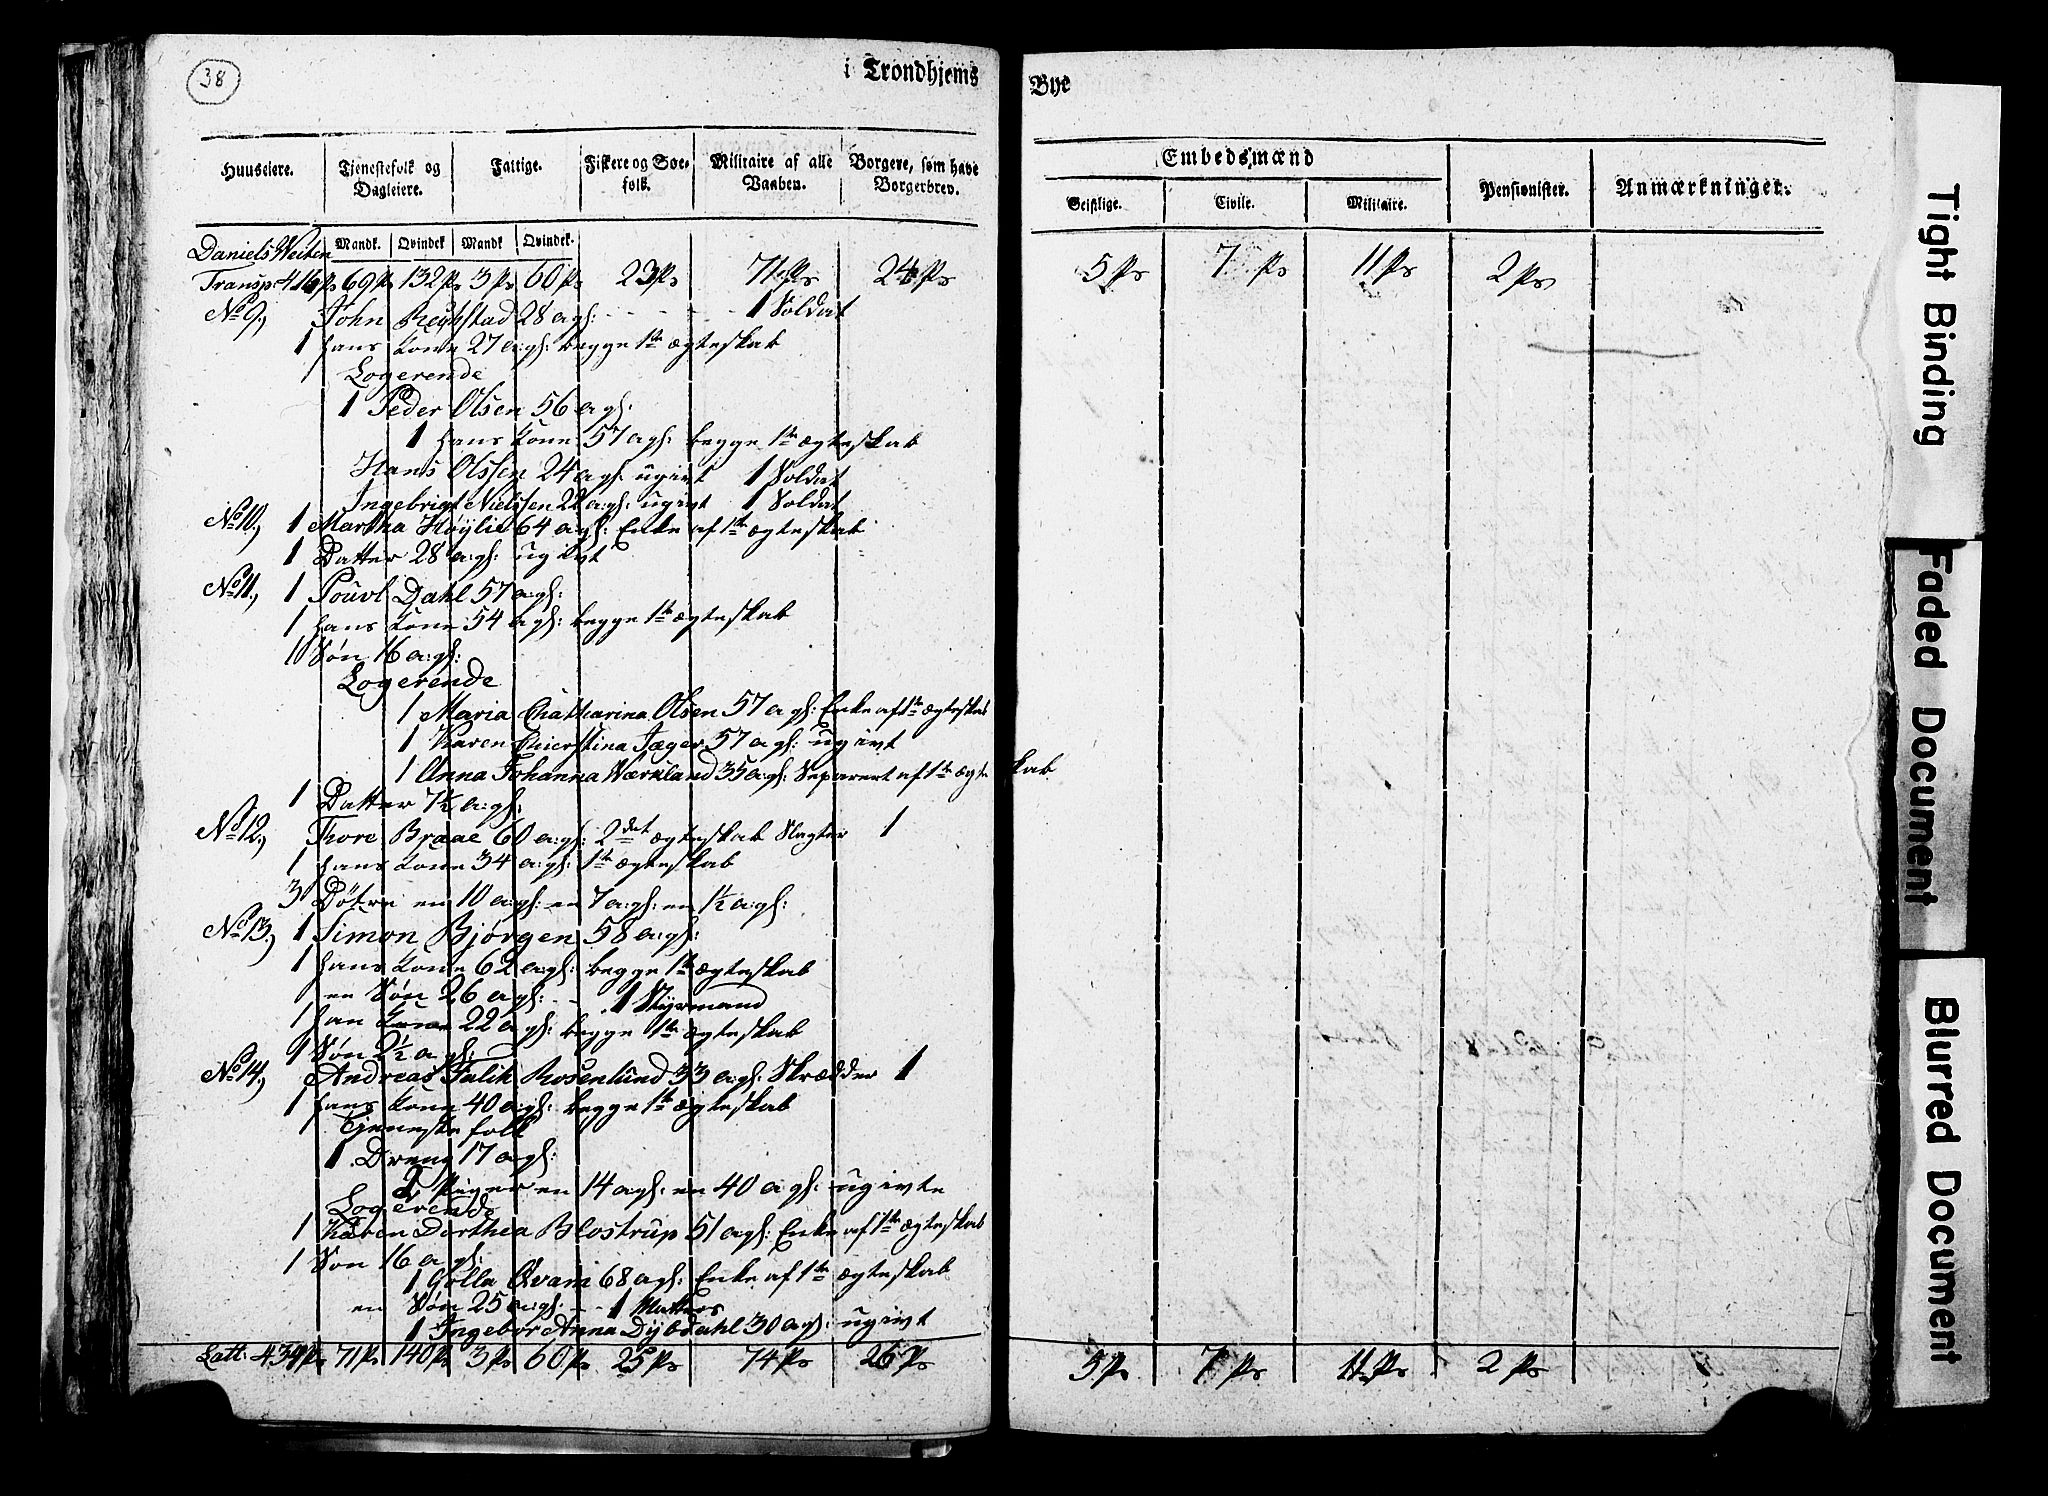 38
i Trondhjems
Bye
Huuseiere.
Tjenestefolk og Dagleiere.
Fattige.
Fiskere og Søefolk.
Militaire af alle Vaaben.
Borgere, som have Borgerbrev.
Embedsmænd
Geistlige.
Civile.
Militaire.
Pensionister.
Anmærkninger.
Mandk. Qvindek Mandk Qvindek.
Daniels Weiten
Transp: 416 Ps 69 Ps 132 Ps 3 Ps 60 Ps 23 Ps 71 Ps 24 Ps 5 Ps 7 Ps 11 Ps 2 Ps
No 9, John Reybstad 28 agl: 1 Soldat
1 hans Kone 27 agl: begge 1te ægteskab
Logerende
1 Peder Olsen 56 agl:
1 hans Kone 57 agl: begge 1te ægteskab
Hans Olssen 24 agl: ugivt 1 Soldat
Ingebrigt Nielssen 22 agl: ugivt 1 Soldat
No 10, 1 Martha Høylie 64 agl: Enke af 1te ægteskab
1 Datter 28 agl: ugivt
No 11, 1 Pouvl Dahl 57 agl:
1 hans Kone 54 agl: begge 1te ægteskab
1 Søn 16 agl:
Logerende
1 Maria Chatharina Olsen 57 agl: Enke af 1te ægteskab
1 Karen Chierstina Jæger 57 agl: ugivt
1 Anna Johanna Værkland 35 agl: Separert af 1te ægteskab
1 Datter 7½ agl:
No 12, Thore Braae 60 agl: 2det ægteskab Slagter 1
1 hans Kone 34 agl: 1te ægteskab
3 Døtre en 10 agl: en 7 agl: en 1½ agl:
No 13, 1 Simon Bjørgen 58 agl:
1 hans Kone 62 agl: begge 1te ægteskab
en Søn 26 agl: 1 Styrmand
1 han Kone 22 agl: begge 1te ægteskab
1 Søn 2½ agl:
No 14, Andreas Falik Rosenlund 33 agl: Skrædder 1
1 hans Kone 40 agl: begge 1te ægteskab
Tjeneste folk
1 Dreng 17 agl:
2 Piger en 14 agl: en 40 agl: ugivte
Logerende
1 Karen Dorthea Blostrup 51 agl: Enke af 1te ægteskab
1 Søn 16 agl:
1 Golla Qvam 68 agl: Enke af 1te ægteskab
en Søn 25 agl: 1 Matros
1 Ingebor Anna Dybdahl 30 agl: ugivt
Latt: 434 Ps 71 Ps 140 Ps 3 Ps 60 Ps 25 Ps 74 Ps 26 Ps 5 Ps 7 Ps 11 Ps 2 Ps
Tight Binding
Faded Document
Blurred Document